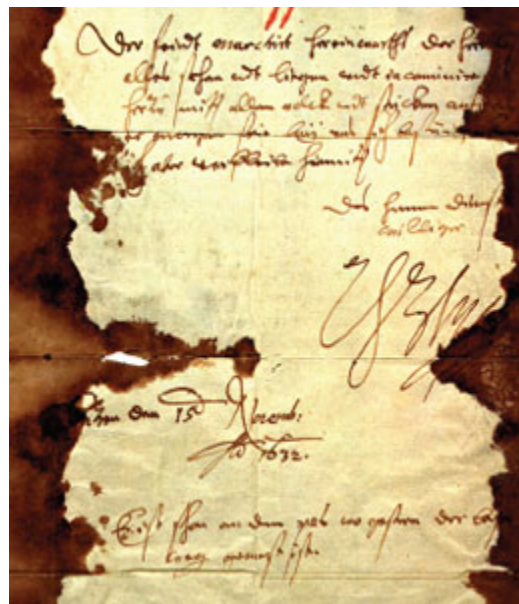 Der feindt marchirt hereinwarths der herr
alles stehen undt liegen undt incaminire
herzu mitt allem volck undt stücken
er morgen frie bey uns sich
ich aber verbleibe hiemitt
Des herren
williger
den 15 Novemb:
Ao 1632.
Er ist schon an dem pas wo gestern der
weeg gewest ist.